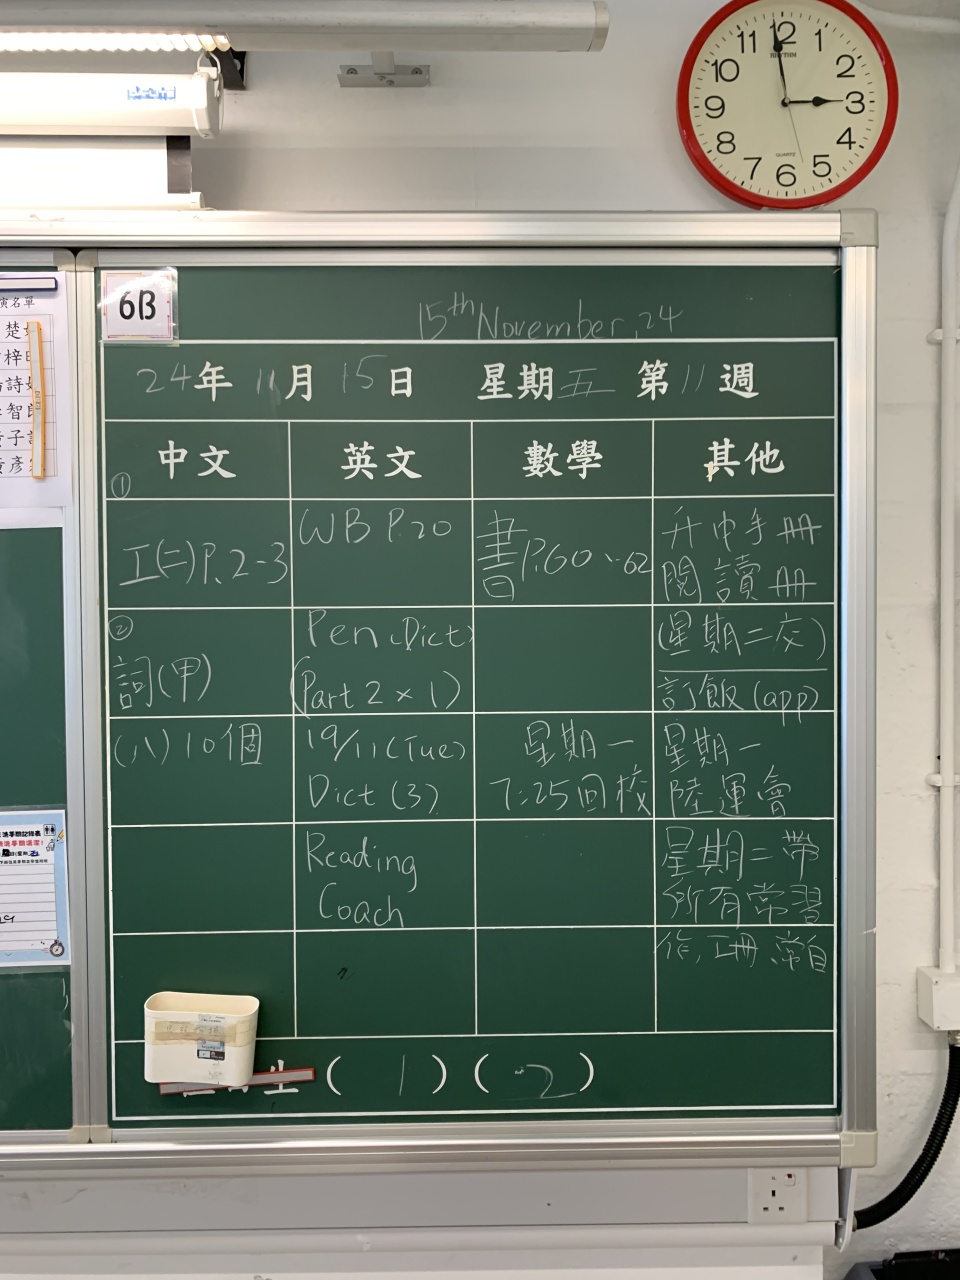 11 12 1
10 2
9 3
8 4
7 6 5
RHYTHM
QUARTZ
6B
15th November, 24
24年 11月 15日 星期五 第11週
中文 英文 數學 其他
①
工(二)P.2-3
②
詞(甲)
(八)10個
WB P.20
Pen (Dict)
(Part 2 × 1)
19/11 (Tue)
Dict (3)
Reading
Coach
書P.60、62
星期一
7:25回校
升中手冊
閱讀冊
(星期二交)
訂飯(app)
星期一
陸運會
星期二帶
所有常習
作,工冊、常自
生( 1 )( 2 )
名單
楚
梓
詩
智
子
彥